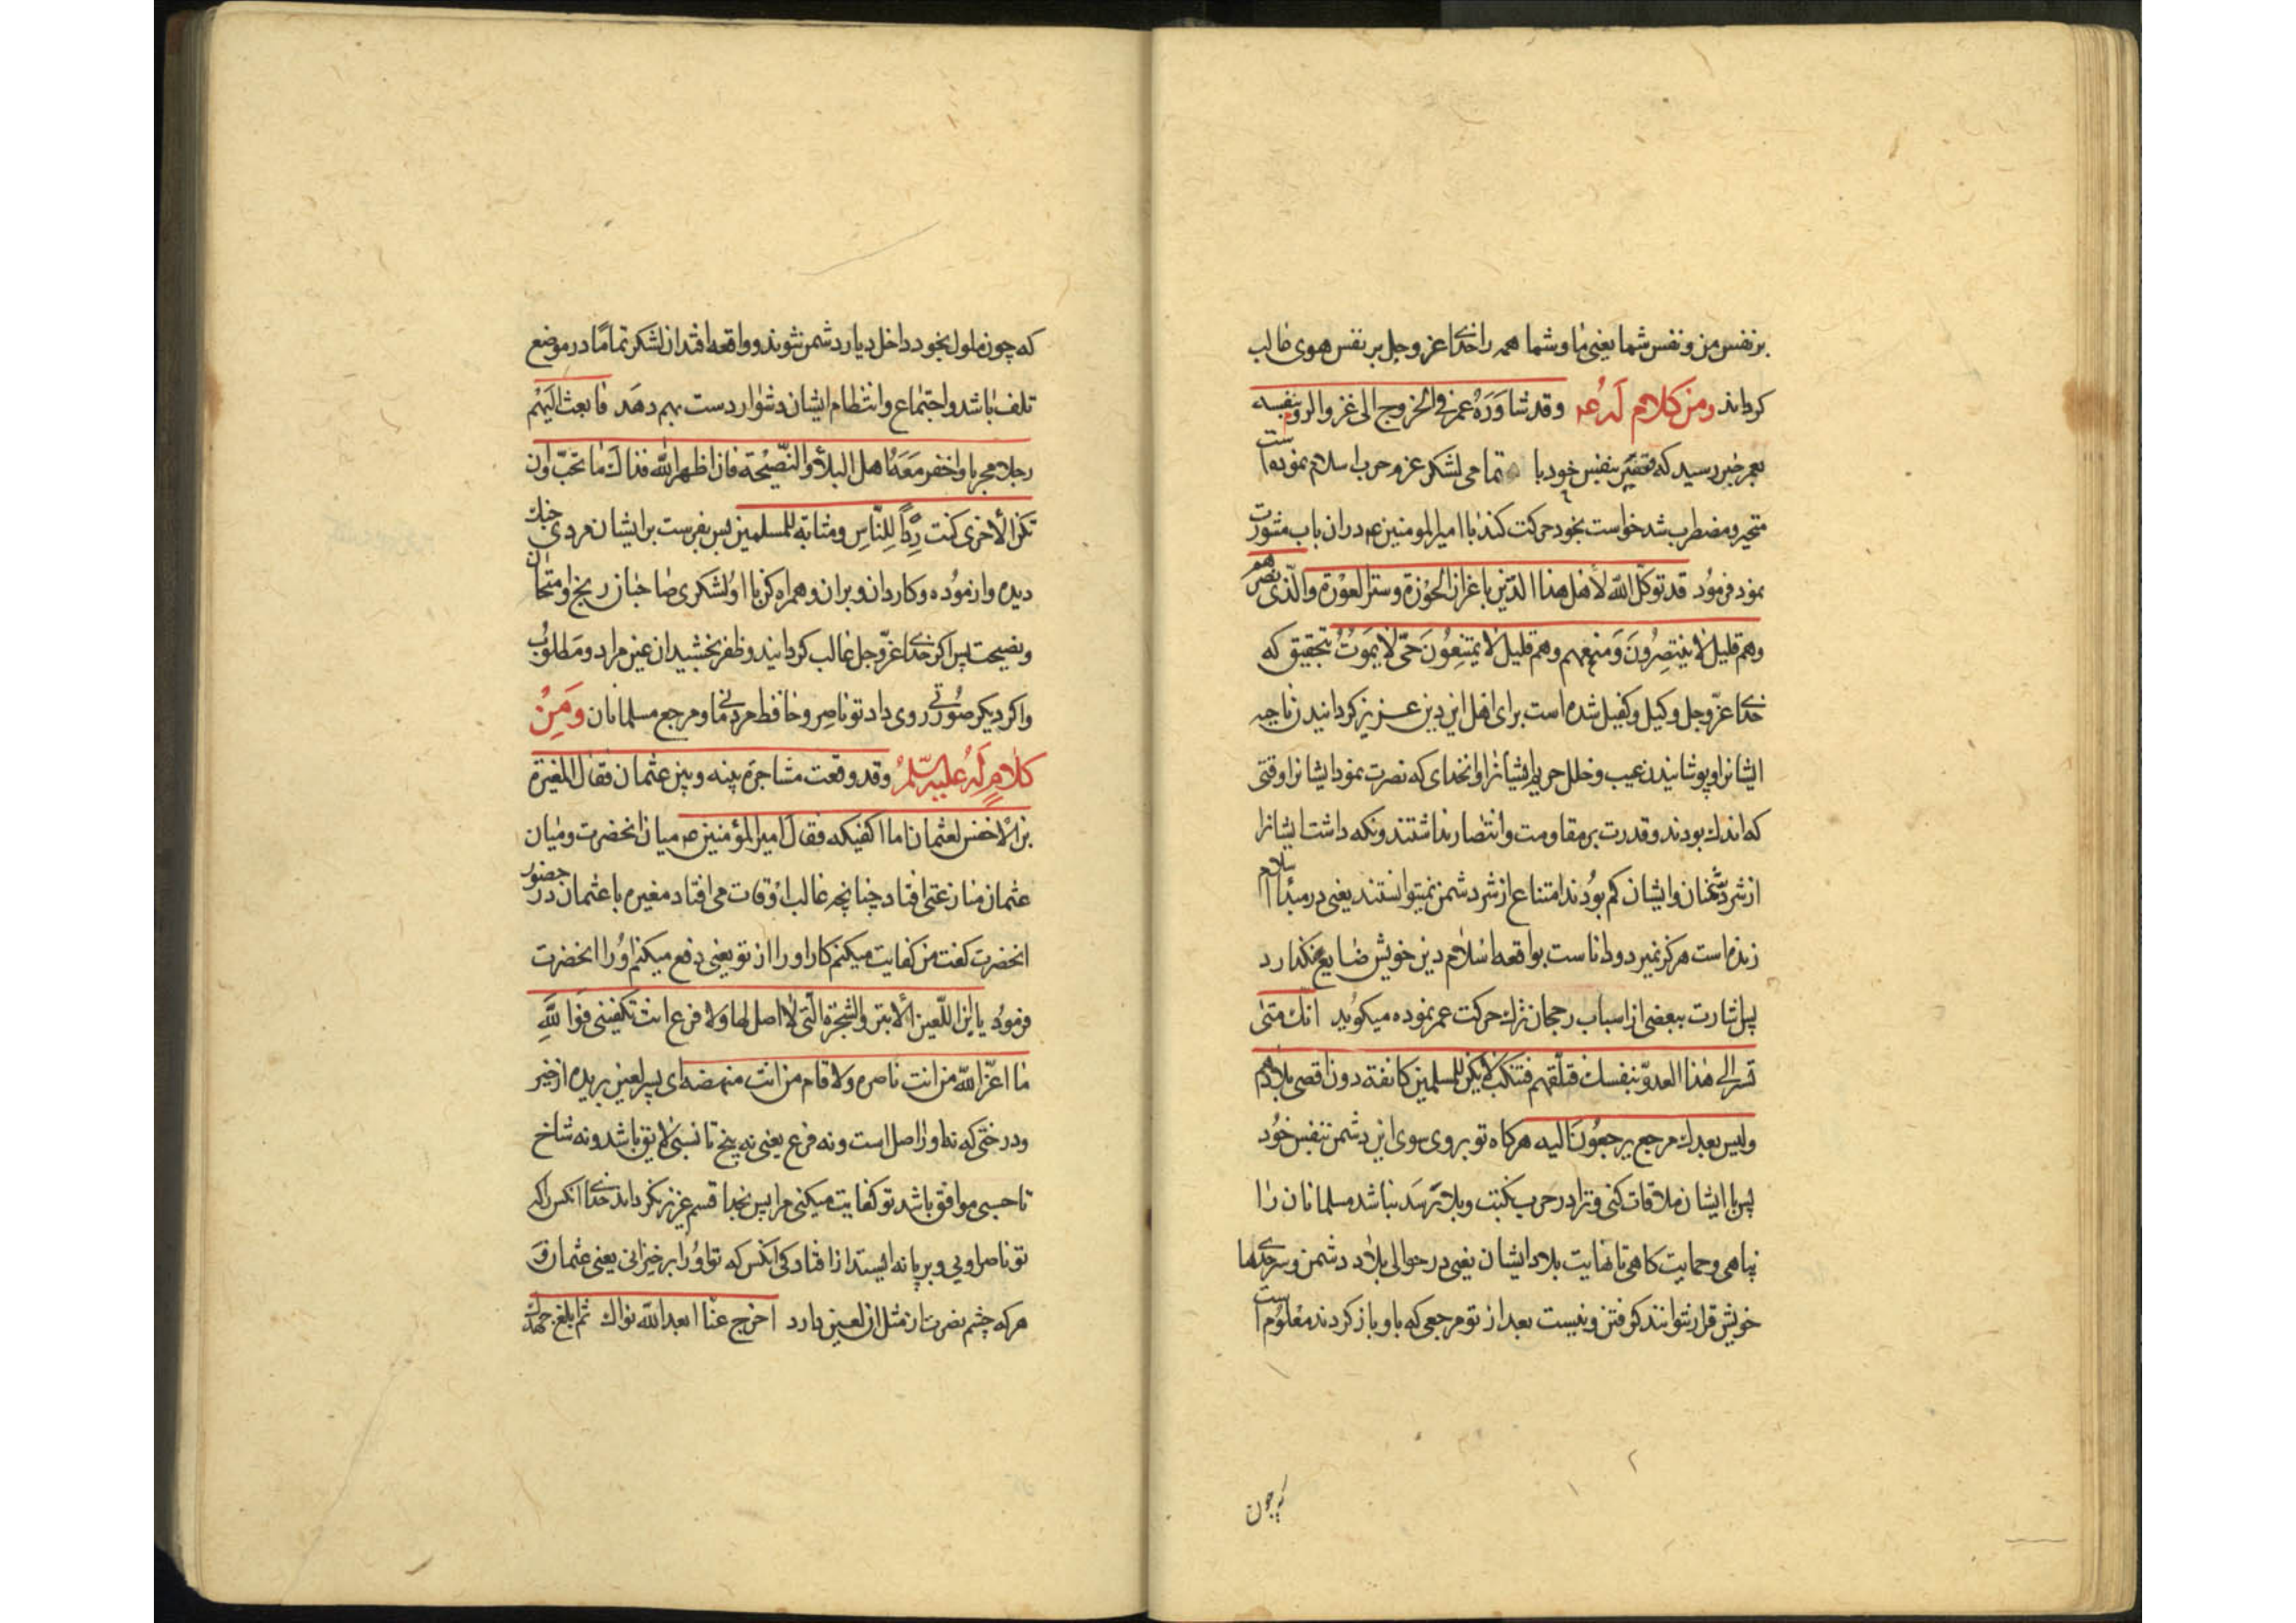 برنفس من و نفس شما یعنی ما و شما همه را خدای عز و جل بر نفس هوی غالب
کرداند ومن کلام له عم وقد شاوره عمر فی الخروج الی غزو الروم بنفسه
بعمر خبر رسید که قیصر بنفس خود با تمامی لشکر عزم حرب اسلام نموده است
متحیر و مضطرب شد خواست بخود حرکت کند با امیر المومنین عم دران باب مشورت
نمود فرمود قد توکّل الله لأهل هذا الدّین باعزاز الحوزة وستر العورة والّذی نصرهم
وهم قلیل لا ینتصرُونَ وَمنعهم وهم قلیل لا یمتنِعُونَ حَیّ لا یَمَوُتُ بتحقیق که
خدای عزّ و جل وکیل و کفیل شده است برای اهل این دین عزیز کردانیدن ناحیه
ایشانرا و پوشانیدن عیب و خلل حریم ایشانرا و انخدای که نصرت نمود ایشانرا وقتی
که اندک بودند و قدرت بر مقاومت و انتصار نداشتند و نکه داشت ایشانرا
از شر دشمنان و ایشان کم بودند امتناع از شر دشمن نمیتوانستند یعنی در مبدأ اسلام
زنده است هرکز نمیرد و دانا ست بواقعه اسلام دین خویش ضایع نکذارد
پس اشارت ببعضی از اسباب رجحان ترک حرکت عمر نموده میکوید انّک متی
تسر الی هذا العدوّ بنفسک فتلقهم فتنکب لا یکن للمسلمین کانفة دون اقصی بلادهم
ولیس بعدک مرجع یرجعُونَ الیه هرکاه تو بروی سوی این دشمن بنفس خود
پس با ایشان ملاقات کنی و ترا در حرب نکبت و بلا رسد نباشد مسلمانان را
پناهی و حمایت کاهی تا نهایت بلاد ایشان یعنی در حوالی بلاد دشمن و سرحدها
خویش قرار نتوانند کرفتن و نیست بعد از تو مرجعی که باو باز کردند معلوم است
که چون
که چون ملول بخود داخل دیار دشمن شوند و واقعه افتد ان لشکر تماما در موضع
تلف باشد و اجتماع و انتظام ایشان دشوار دست بهم دهد فابعث الیَهْم
رجلا مجربا واحفز مَعَهُ اهل البلأ والنّصیْحة فان اظهر الله فذاک ما تحبّ وان
تکن الأخری کنت رِدْأً لِلنّاسِ ومثابة للمسلمین پس بفرست برایشان مردی جنک
دیده و ازموده و کاردان و بران و همراه کن با او لشکری صاحبان رنج و امتحان
و نصیحت پس اکر خدای عزّ و جل غالب کردانید و ظفر بخشید ان عین مراد و مَطلوُب
و اکر دیکر صورتی روی داد تو ناصر و حافظ مردمانی و مرجع مسلمانان ومَنِ
کلامٍ لَهُ علیه السّلمُ وقد وقعت مشاجرة بینه وبین عثمان فقال المغیرة
بن الأخنس لعثمان انا اکفیکه فقال امیر المؤمنین عم میان انحضرت و میان
عثمان منازعتی افتاد چنانچه غالب اوقات می افتاد مغیره با عثمان در حضور
انحضرت کفت من کفایت میکنم کار او را از تو یعنی دفع میکنم اوُرا انحضرت
فرمود یا بن اللّعین الأبتر والشجرة الّتی لا اصل لها ولا فرع انت تکفینی فَوَاللَّهِ
ما اعزّ الله من انت ناصره ولا قام من انت منهضه ای پسر لعین بریده از خیر
و درختی که نه او را اصل است و نه فرع یعنی نه بیخ تا نسبی لایق باشد و نه شاخ
تا حسبی موافق باشد تو کفایت میکنی مرا پس بخدا قسم عزیز نکرداند خدای انکس را که
تو ناصر اویی و بر پا نه ایستد از افتادکی انکس که تو اوُرا برخیزانی یعنی عثمان وَ
هرکه چشم نصرت از مثل ان لعین دارد اخرج عنّا ابعد الله نواک ثم ابلغ جهدک